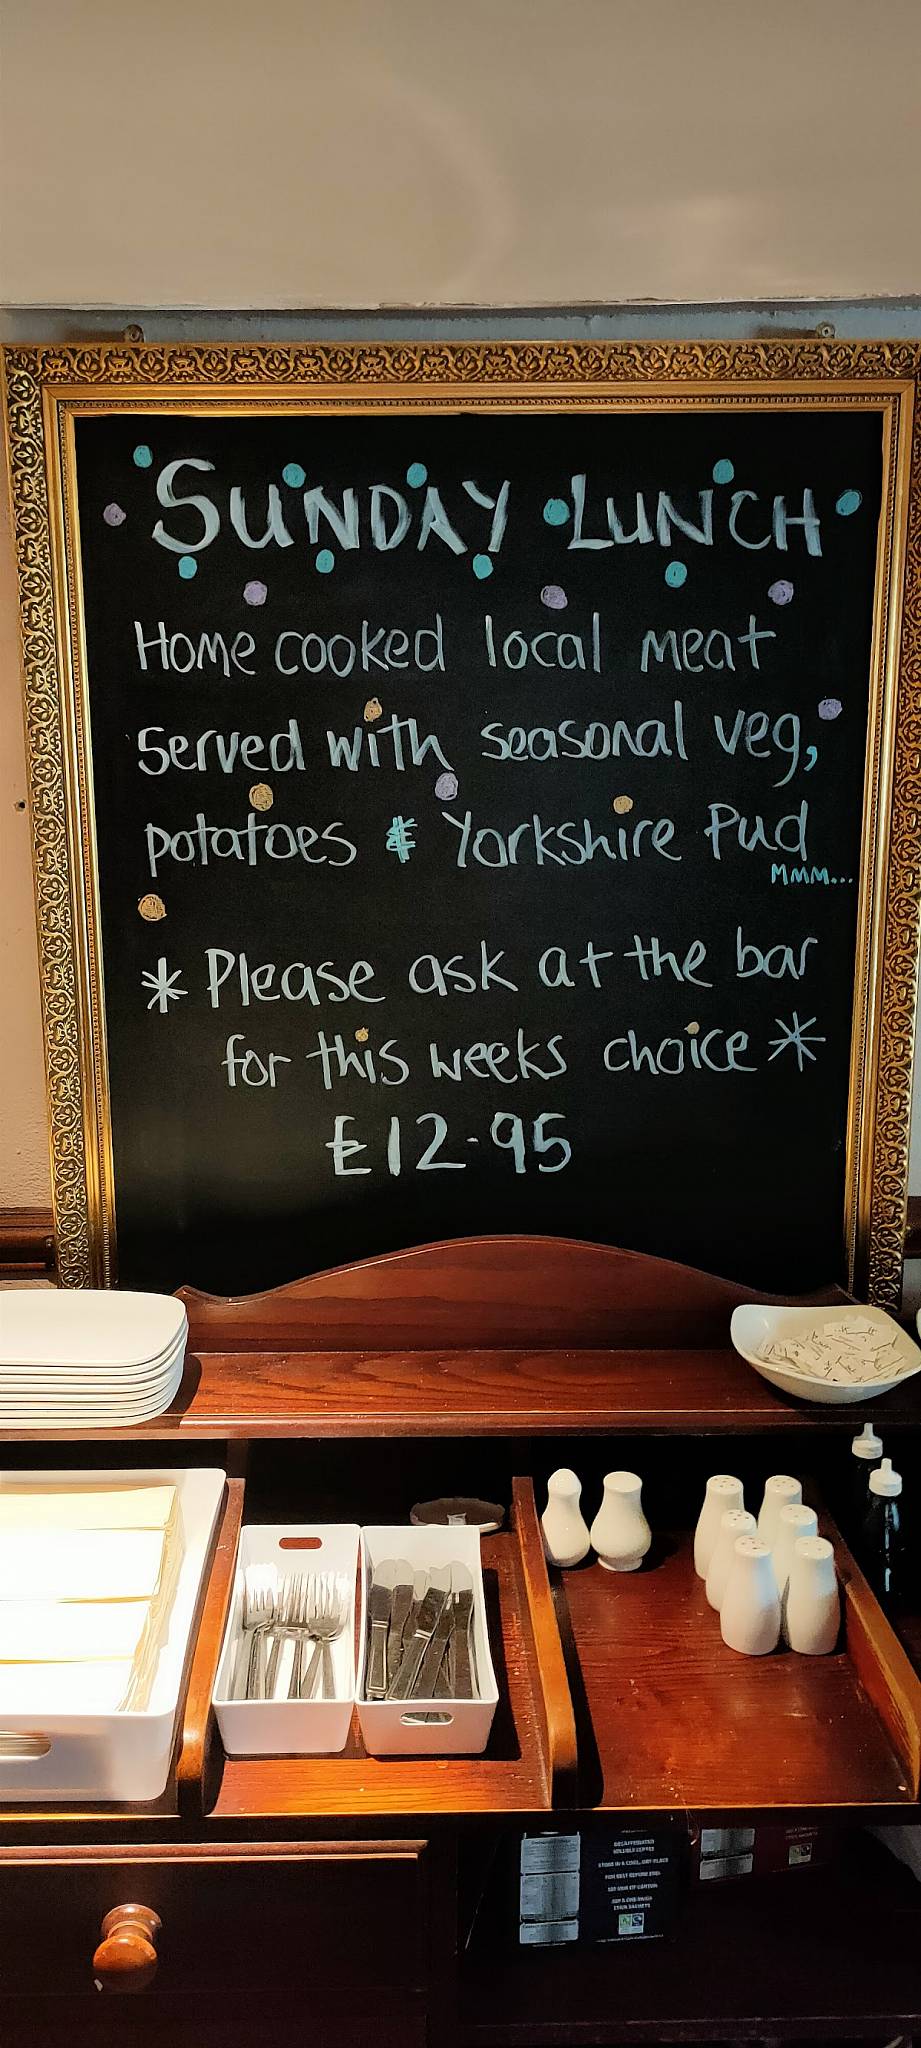 SUNDAY LUNCH
Home cooked local meat
Served with seasonal veg,
potatoes & Yorkshire Pud
MMM...
* Please ask at the bar
for this weeks choice *
£12.95
DECAFFEINATED
SOLUBLE COFFEE
STORE IN A COOL, DRY PLACE
FOR BEST BEFORE END: